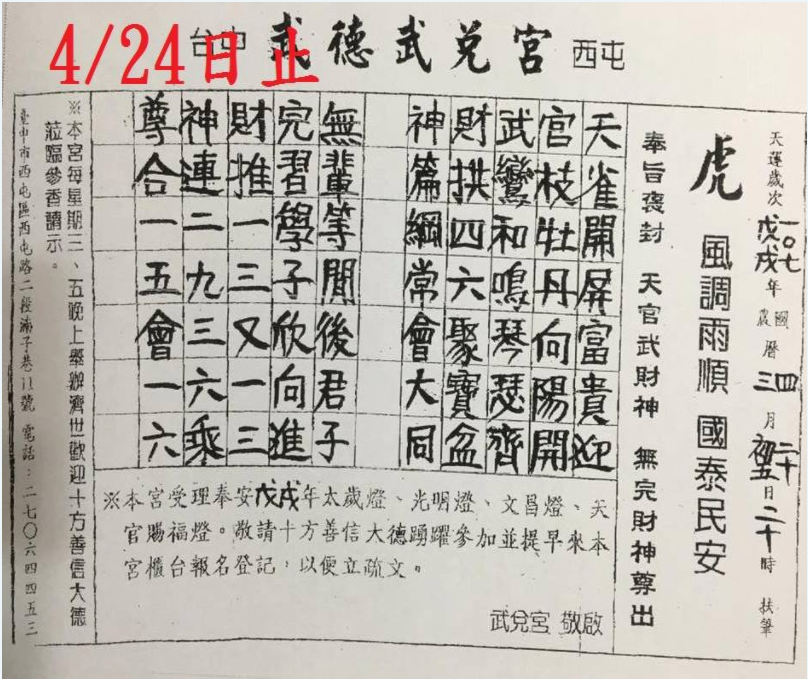 台中 武德武兌宮 西屯
4/24日止
天運歲次一〇七戊戌年國農曆四三月二十初五日二十時 扶筆
虎 風調雨順 國泰民安
奉旨褒封 天官武財神 無完財神尊出
天雀開屏富貴迎
官枝牡丹向陽開
武鸞和鳴琴瑟齊
財拱四六聚寶盆
神篇綱常會大同
無輩等閒後君子
完習學子欣向進
財推一三又一三
神連二九三六乘
尊合一五會一六
※本宮受理奉安戊戌年太歲燈、光明燈、文昌燈、天
官賜福燈。敬請十方善信大德踴躍參加並提早來本
宮櫃台報名登記,以便立疏文。
武兌宮 敬啟
※本宮每星期三、五晚上舉辦濟世歡迎十方善信大德
蒞臨參香請示。
臺中市西屯區西屯路二段湳子巷11號 電話:二七〇六四四五三